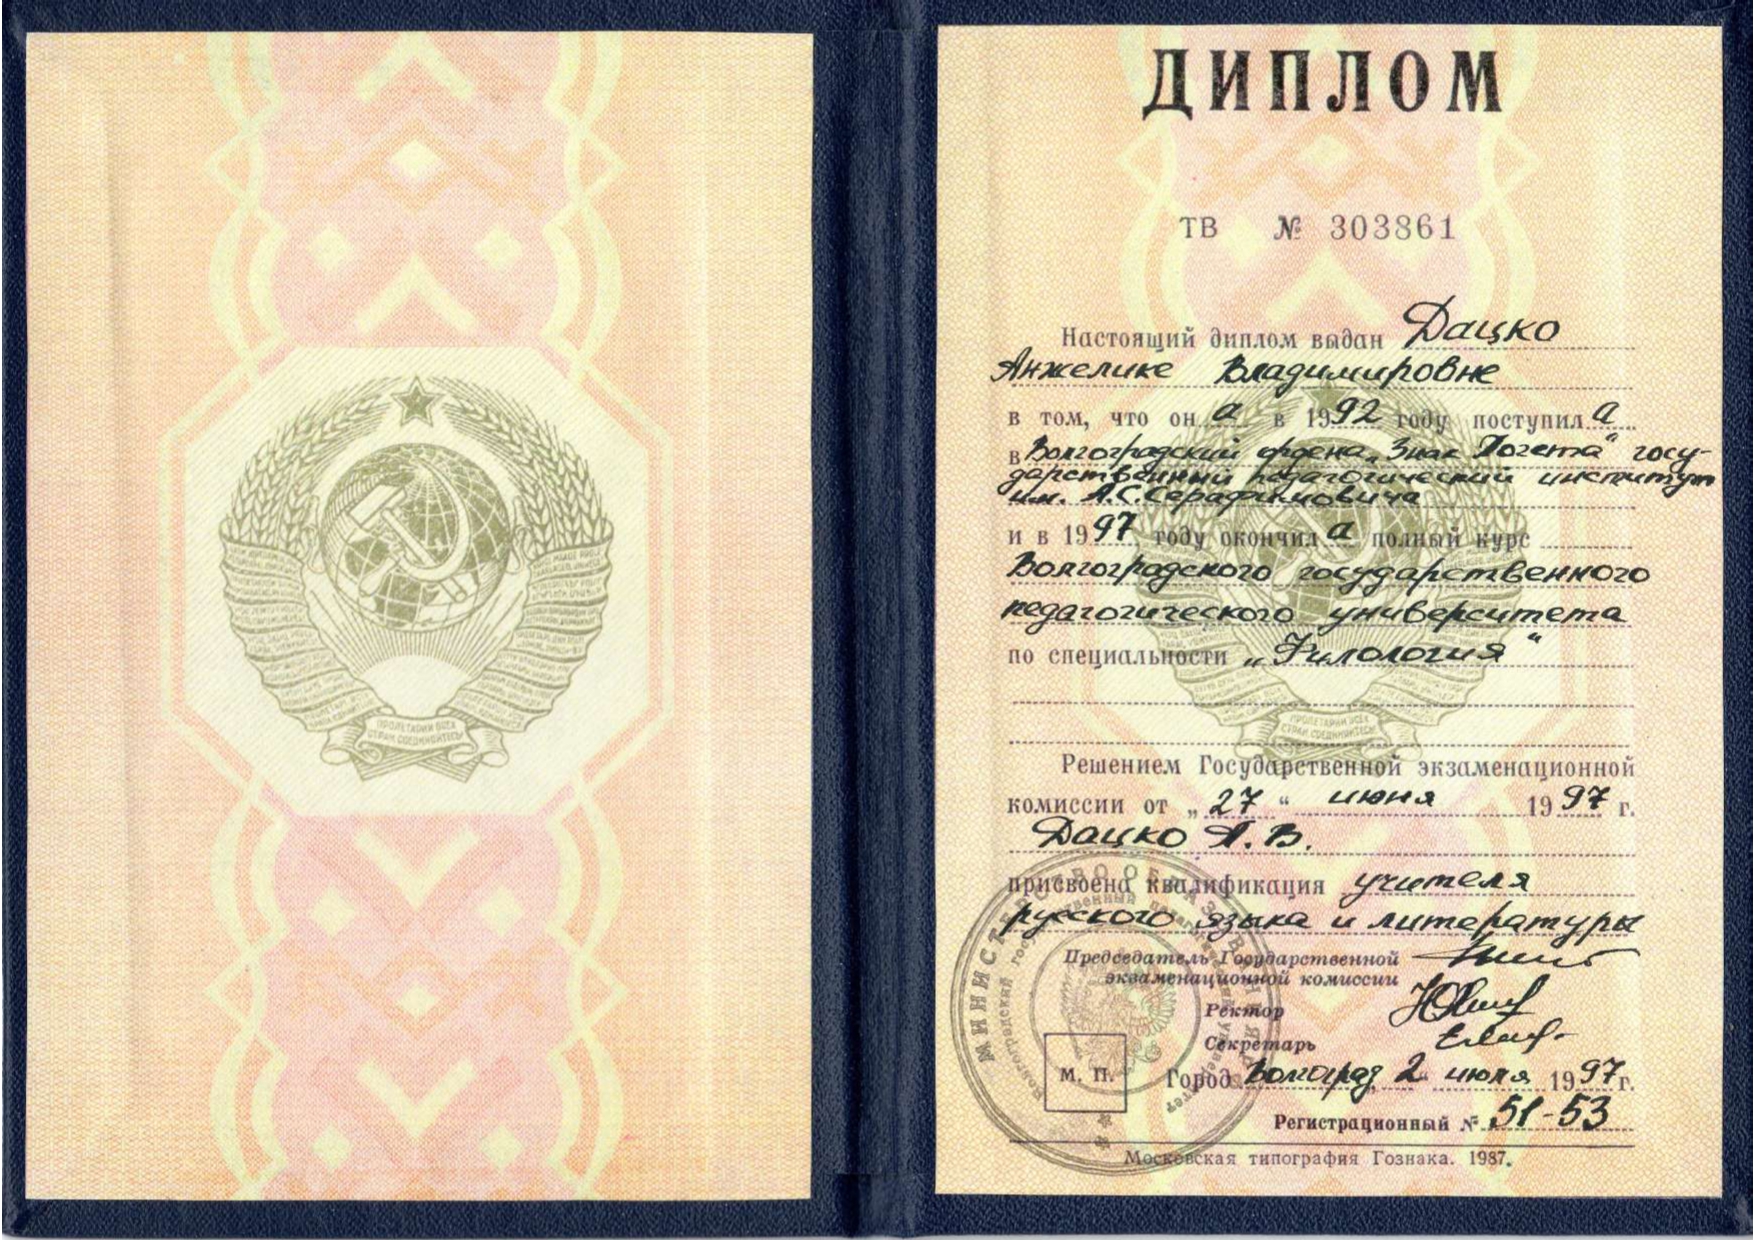 ПРОЛЕТАРИИ ВСЕХ
СТРАН СОЕДИНЯЙТЕСЬ!
ДИПЛОМ
ТВ № 303861
Настоящий диплом выдан Дацко
Анжелике Владимировне
в том, что он а в 1992 году поступил а
в Волгоградский ордена „Знак Почета" госу-
дарственный педагогический институт
им. А.С.Серафимовича
и в 1997 году окончил а полный курс
Волгоградского государственного
педагогического университета
по специальности „Филология"
ПРОЛЕТАРИИ ВСЕХ
СТРАН СОЕДИНЯЙТЕСЬ!
Решением Государственной экзаменационной
комиссии от „27" июня 1997 г.
Дацко А.В.
присвоена квалификация учителя
русского языка и литературы
Председатель Государственной
экзаменационной комиссии
Ректор
Секретарь
М. П.
Город Волгоград 2" июля 1997г.
Регистрационный № 51-53
Московская типография Гознака. 1987.
МИНИСТЕРСТВО ОБРАЗОВАНИЯ